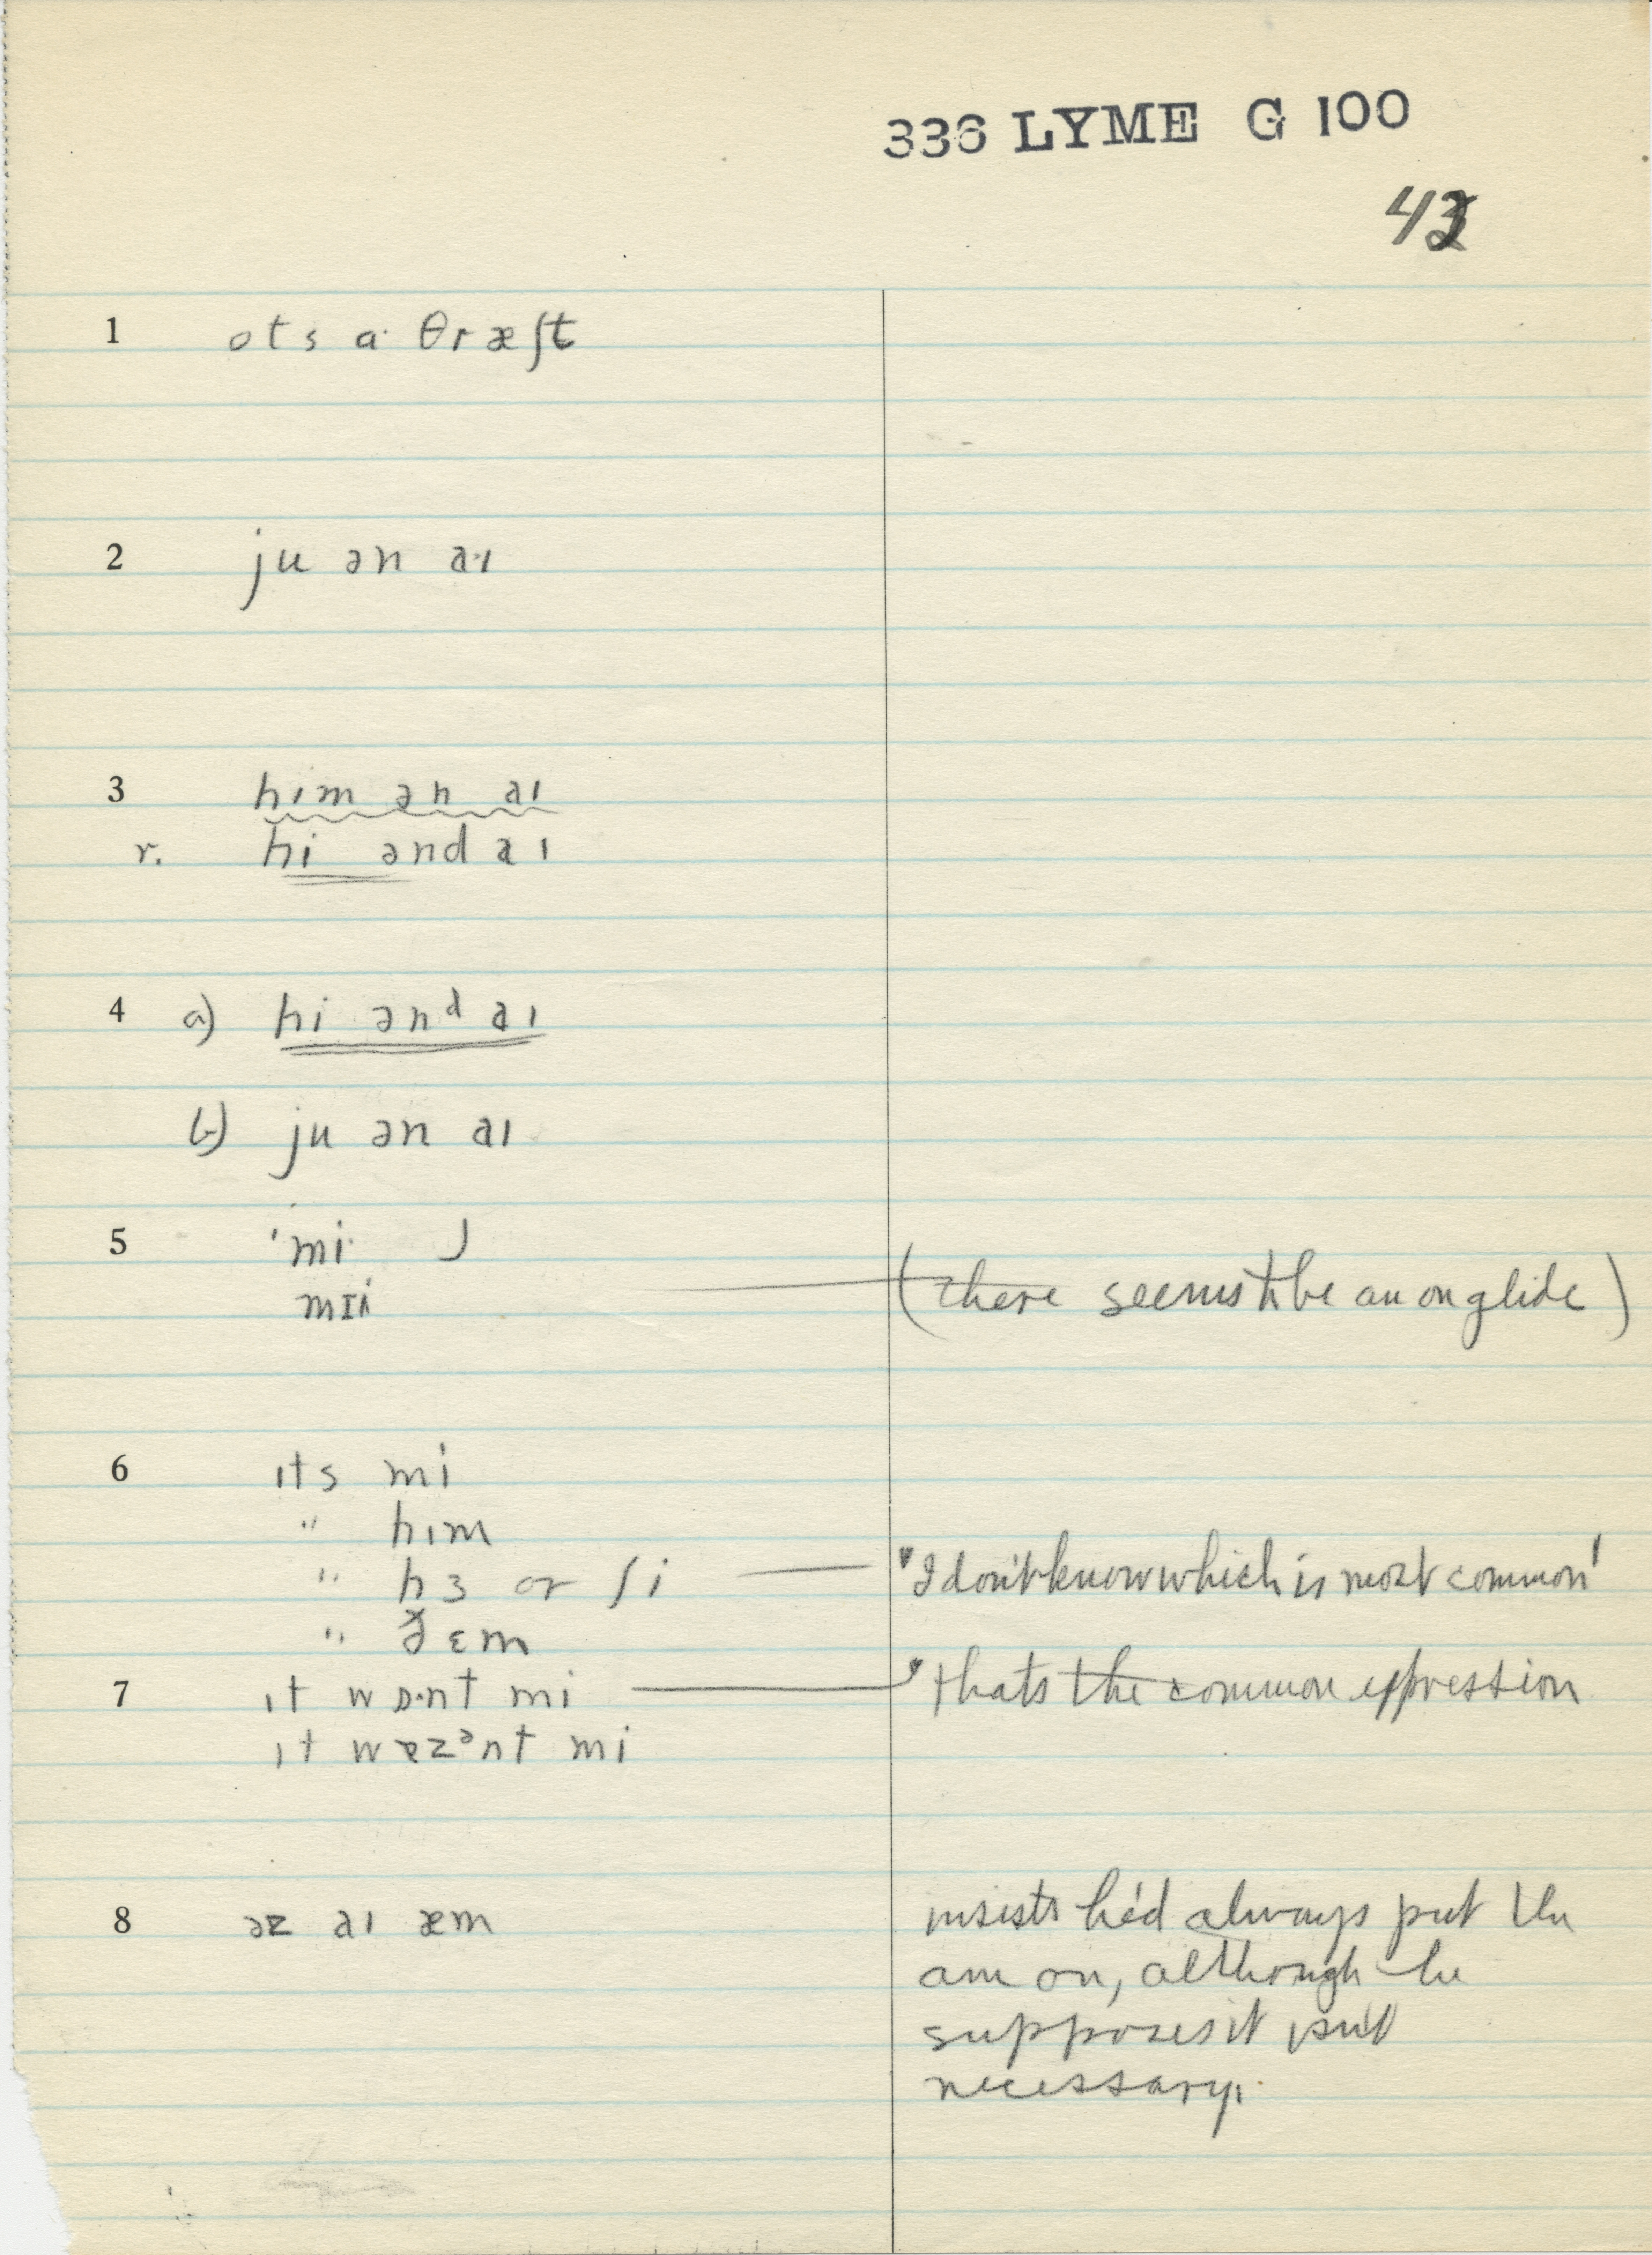 336 LYME G 100
43
1 ots a· θræʃt
2 ju ən a·ɪ
3 hɪm ən aɪ
r. hi ənd aɪ
4 a) hi ənᵈ aɪ
b) ju ən aɪ
5 'mi·
mɪi (there seems to be an onglide)
6 ɪts mi
" hɪm
" hɜ or ʃi — "I don't know which is most common"
" ðɛm
7 ɪt wɒ·nt mi — "thats the common expression
ɪt wɐzᵊnt mi
8 əz aɪ æm insists he'd always put the
am on, although he
supposes it isn't
necessary.